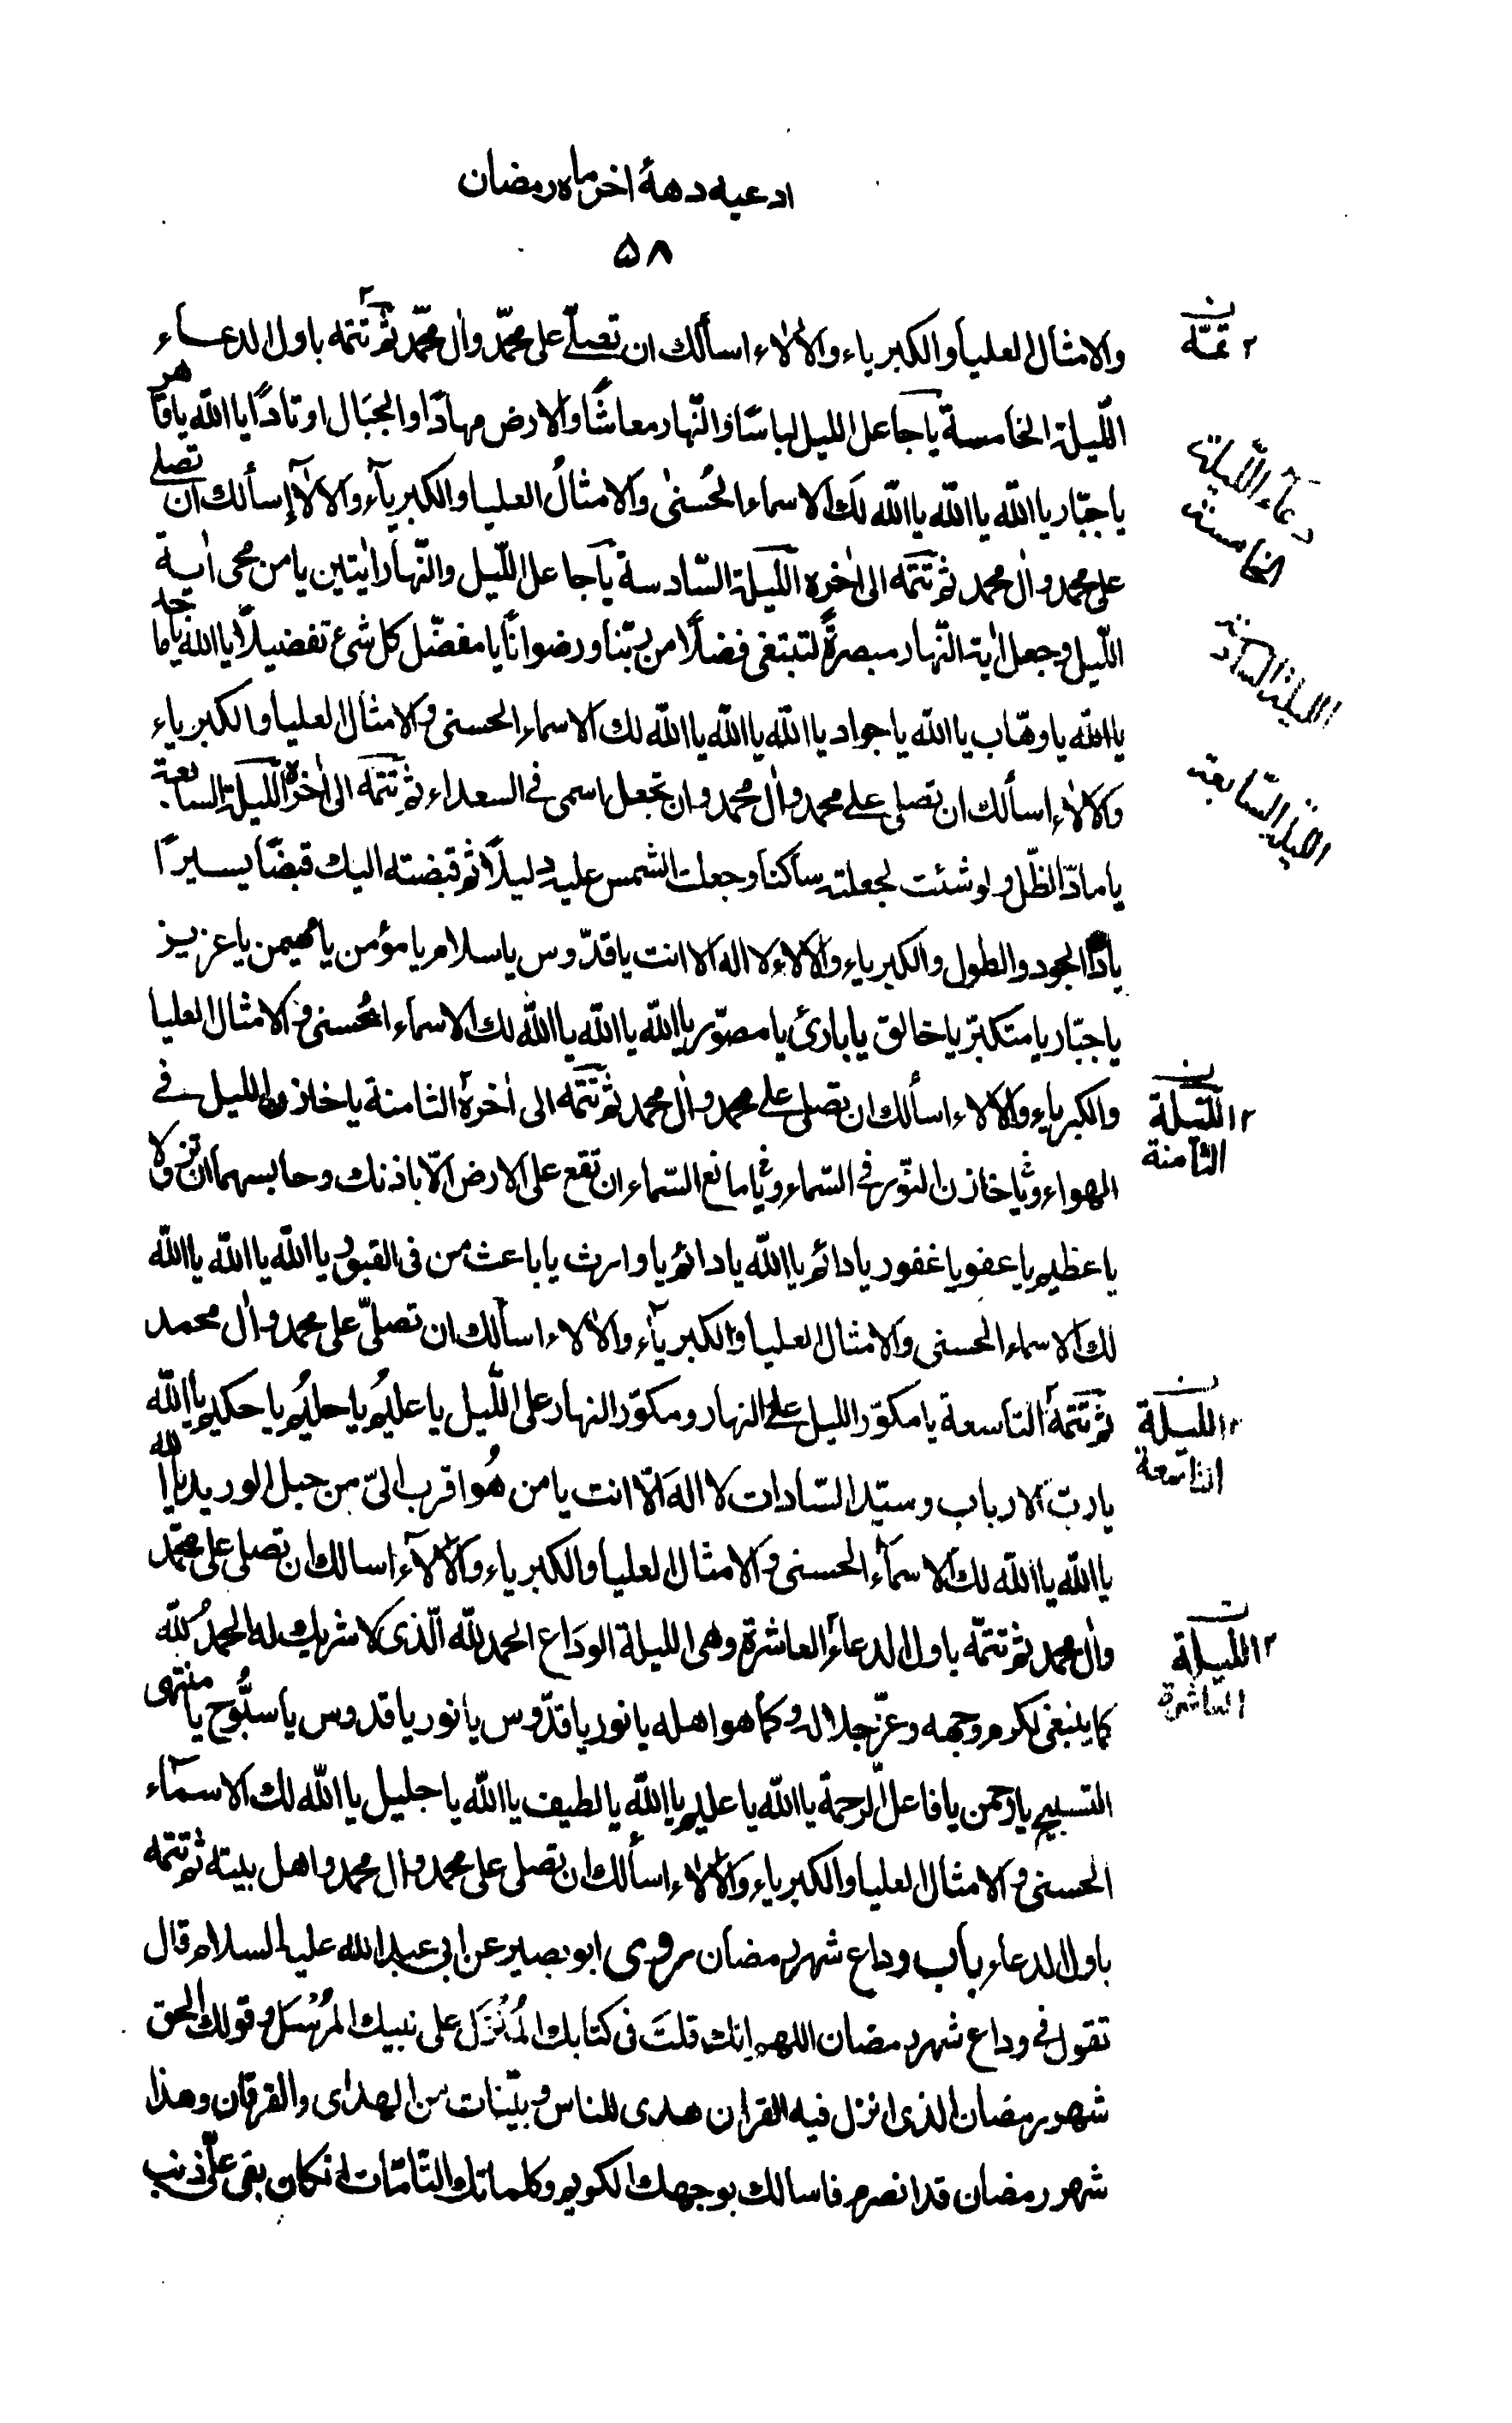 ادعیه دههٔ اخر ماه رمضان
۵۸
والامثال العلیا والکبریاء والالاء اسألك ان تصلّی علی محمّد وال محمّد ثمّ تتمه باول الدعاء
اللّیلة الخامسة یا جاعل اللیل لباسًا والنّهار معاشًا والارض مهادًا والجبال اوتادًا یا الله یا قاهر
یا جبّار یا الله یا الله یا الله لك الاسماء الحُسنیٰ والامثالُ العلیا والکبریآء والالآء إسألك ان تصلی
علی محمد وال محمد ثم تتمه الی اٰخره اللّیلة السّادسة یا جاعل اللّیل والنّهار اٰیتین یا من محی اٰیة
اللّیل وجعل اٰیة النّهار مبصرةً لتبتغی فضلًا من ربّنا ورضوانًا یا مفضّل کل شیء تفضیلًا یا الله یا ماجد
یا الله یا وهّاب یا الله یا جواد یا الله یا الله یا الله لك الاسماء الحسنی والامثال العلیا والکبریاء
والالاء اسألك ان تصلی علی محمد وال محمد وان تجعل اسمی فی السعداء ثم تتمه الی اٰخره اللّیلة السابعة
یا مادّ الظّل ولو شئت لجعلته ساکنا وجعلت الشمس علیه دلیلًا ثم قبضته الیك قبضًا یسیرًا
یا ذا الجود والطول والکبریاء والالاء لا اله الا انت یا قدّوس یا سلام یا مؤمن یا مهیمن یا عزیز
یا جبّار یا متکبّر یا خالق یا بارئ یا مصوّر یا الله یا الله یا الله لك الاسماء الحُسنی والامثال العلیا
والکبریاء والالاء اسألك ان تصلی علی محمد وال محمد ثم تتمه الی اٰخره الثامنة یا خازن اللیل فی
الهواء ویا خازن النّور فی السّماء ویا مانع السّماء ان تقع علی الارض الّا باذنك وحابسهما ان تزولا
یا عظیم یا عفو یا غفور یا دائم یا الله یا دائم یا وارث یا باعث من فی القبور یا الله یا الله یا الله
لك الاسماء الحسنی والامثال العلیا والکبریآء والالاء اسألك ان تصلّی علی محمد وال محمد
ثم تتمه التاسعة یا مکوّر اللیل علی النهار ومکوّر النهار علی اللّیل یا علیمُ یا حلیمُ یا حکیم یا الله
یا ربّ الارباب وسیّد السّادات لا الهَ الّا انت یا من هُو اقرب الیّ من حبل الورید یا الله
یا الله یا الله لك الاسمآء الحسنی والامثال العلیا والکبریاء والالآء اسالك ان تصلی علی محمّد
وال محمد ثم تتمّه باول الدعاء العاشرة وهی اللیلة الوداع الحمد للّه الّذی لا شریك له الحمدُ للّه
کما ینبغی لکرم وجهه وعزّ جلاله وکما هو اهله یا نور یا قدّوس یا نور یا قدوس یا سبُّوح یا منتهی
التسبیح یا رحمن یا فاعل الرحمة یا الله یا علیم یا الله یا لطیف یا الله یا جلیل یا الله لك الاسمآء
الحسنی والامثال العلیا والکبریاء والالاء اسألك ان تصلی علی محمد وال محمد واهل بیته ثم تتمه
باول الدعاء باب وداع شهر رمضان روی ابو بصیر عن ابی عبد الله علیه السلام قال
تقول فی وداع شهر رمضان اللهم اِنك قلتَ فی کتابك المُنْزَل علی نبیك المرُسَل وقولك الحق
شهر رمضان الذی انزل فیه القران هدی للناس وبیّنات من الهدای والفرقان وهذا
شهر رمضان قد انصرم فاسالك بوجهك الکریم وکلماتك التّامّات ان کان بقی علیّ ذنب
۲ تمّة
دعاء اللّیلة
الخامسة
اللیلة السادسة
اللیلة السّابعة
۲ اللّیلة
الثامنة
۲ اللیلة
التاسعة
۲ اللیلة
العاشرة